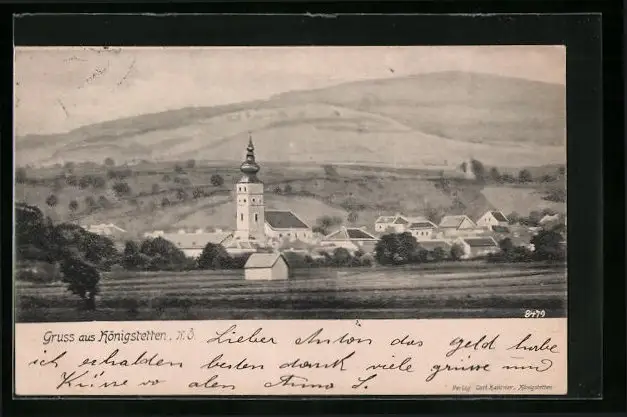 8479
Gruss aus Königstetten, N.Ö.
Lieber Anton das geld habe
ich erhalden besten dank viele grüsse und
Küsse von allen Anna S.
Verlag Königstetten